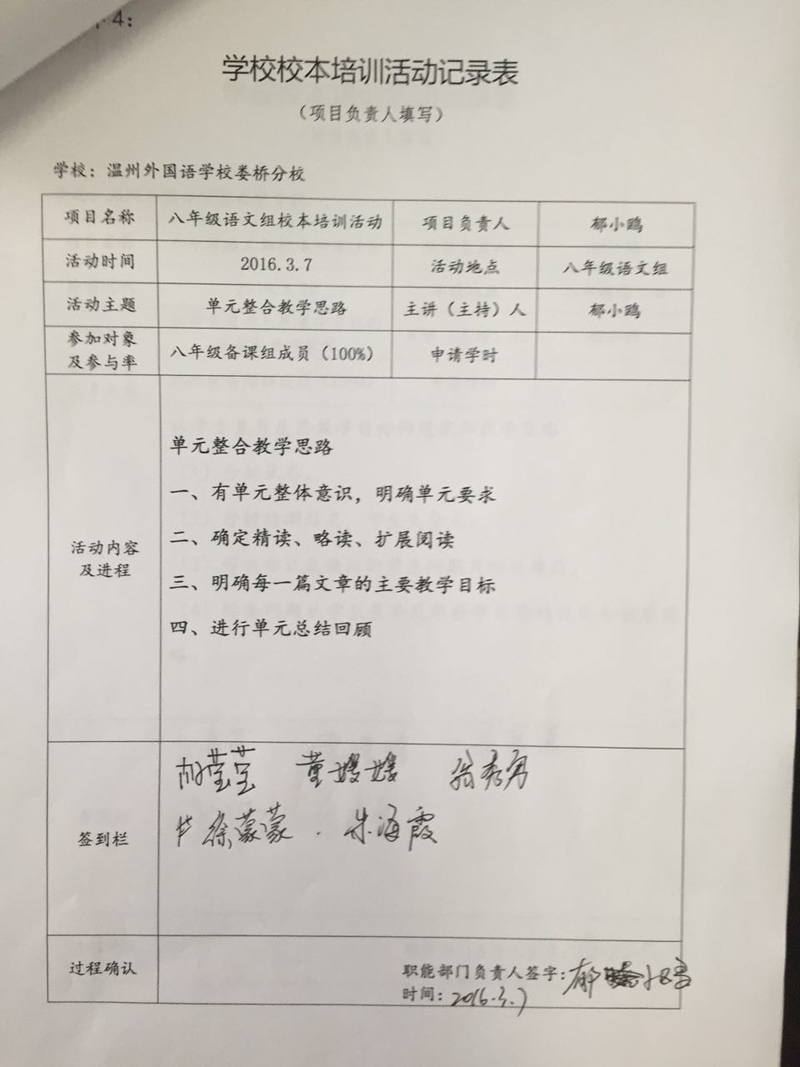 4：
学校校本培训活动记录表
（项目负责人填写）
学校：温州外国语学校娄桥分校
项目名称 八年级语文组校本培训活动 项目负责人 郁小鸥
活动时间 2016.3.7 活动地点 八年级语文组
活动主题 单元整合教学思路 主讲（主持）人 郁小鸥
参加对象
及参与率 八年级备课组成员（100%） 申请学时
活动内容
及进程
单元整合教学思路
一、有单元整体意识，明确单元要求
二、确定精读、略读、扩展阅读
三、明确每一篇文章的主要教学目标
四、进行单元总结回顾
签到栏
胡莹莹 董嫚嫚
徐蒙蒙 朱海霞
过程确认
职能部门负责人签字：郁小鸥
时间：2016.3.7